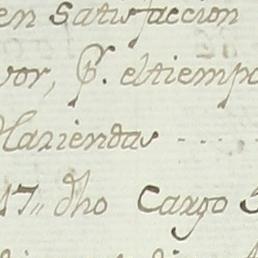 en satisfaccion
vor, p. eltiempo
Haziendas
17,, dho Cargo